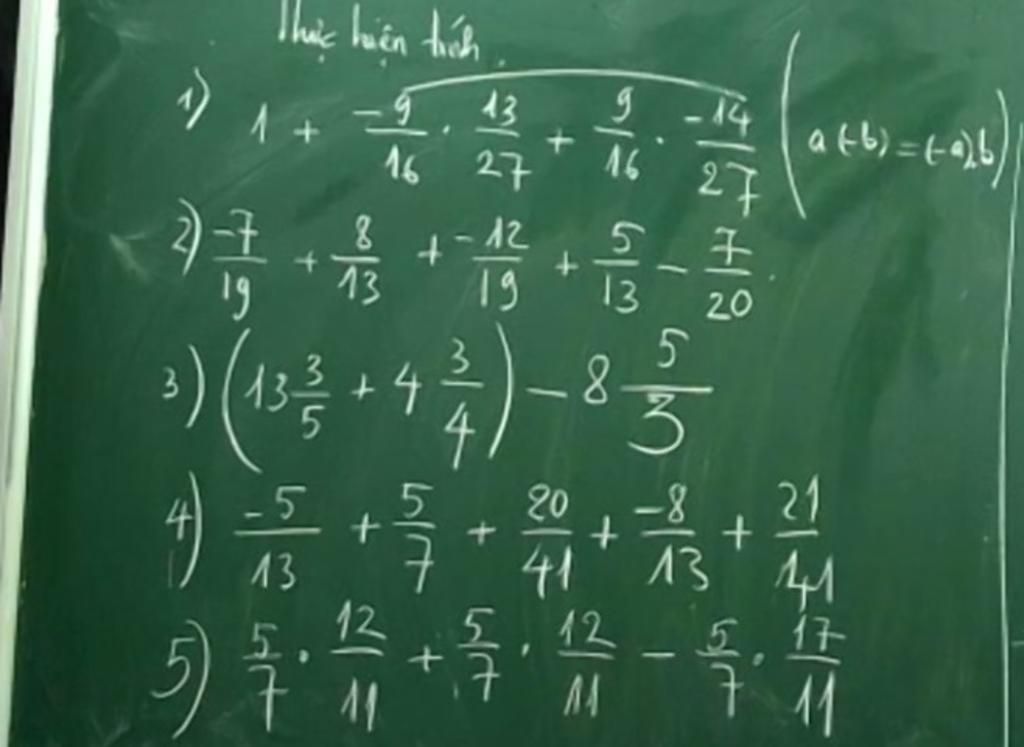 Thực hiện tính.
1) 1 + -9/16 . 13/27 + 9/16 . -14/27 (a(-b) = (-a).b)
2) -7/19 + 8/13 + -12/19 + 5/13 - 7/20.
3) (13 3/5 + 4 3/4) - 8 5/3
4) -5/13 + 5/7 + 20/41 + -8/13 + 21/41
5) 5/7 . 12/11 + 5/7 . 12/11 - 5/7 . 17/11